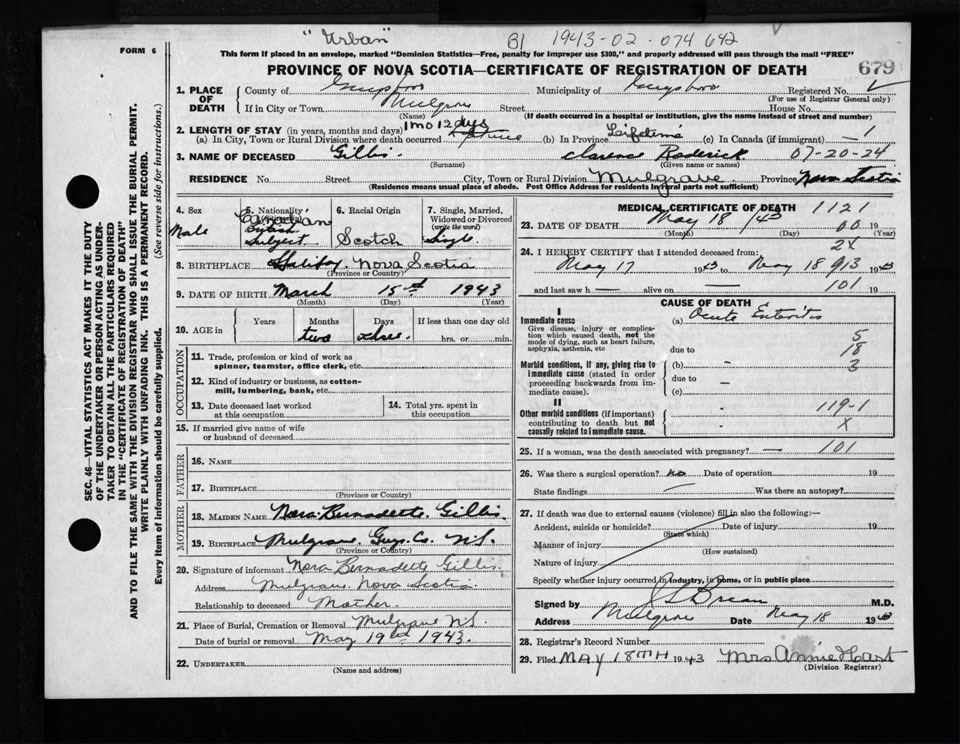 "Urban" B) 1943-02-074642
FORM 6
This form if placed in an envelope, marked "Dominion Statistics—Free, penalty for improper use $300," and properly addressed will pass through the mail "FREE"
PROVINCE OF NOVA SCOTIA—CERTIFICATE OF REGISTRATION OF DEATH 679
1. PLACE OF DEATH
County of Guysboro Municipality of Guysboro Registered No.
(For use of Registrar General only)
If in City or Town Mulgrave Street House No.
(Name) (If death occurred in a hospital or institution, give the name instead of street and number)
2. LENGTH OF STAY (in years, months and days) 1 mo 12 dys
(a) In City, Town or Rural Division where death occurred (b) In Province Lifetime (c) In Canada (if immigrant) —1
3. NAME OF DECEASED Gillis. Clarence Roderick. 07-20-24
(Surname) (Given name or names)
RESIDENCE No. Street City, Town or Rural Division Mulgrave Province Nova Scotia
(Residence means usual place of abode. Post Office Address for residents in rural parts not sufficient)
4. Sex Male
5. Nationality Canadian British Subject
6. Racial Origin Scotch
7. Single, Married, Widowed or Divorced (write the word) Single
8. BIRTHPLACE Halifax, Nova Scotia
(Province or Country)
9. DATE OF BIRTH March 15th 1943
(Month) (Day) (Year)
10. AGE in Years Months Days If less than one day old
two three hrs. or min.
OCCUPATION
11. Trade, profession or kind of work as spinner, teamster, office clerk, etc.
12. Kind of industry or business, as cotton-mill, lumbering, bank, etc.
13. Date deceased last worked at this occupation
14. Total yrs. spent in this occupation
15. If married give name of wife or husband of deceased
FATHER
16. NAME
17. BIRTHPLACE
(Province or Country)
MOTHER
18. MAIDEN NAME Nora Bernadette Gillis.
19. BIRTHPLACE Mulgrave, Guys. Co. N.S.
(Province or Country)
20. Signature of informant Nora Bernadette Gillis.
Address Mulgrave Nova Scotia
Relationship to deceased Mother.
21. Place of Burial, Cremation or Removal Mulgrave N.S.
Date of burial or removal May 19th 1943.
22. UNDERTAKER
(Name and address)
MEDICAL CERTIFICATE OF DEATH 1121
23. DATE OF DEATH May 18 /43 00 19
(Month) (Day) (Year)
24. I HEREBY CERTIFY that I attended deceased from: 24
May 17 1943 to May 18 913 1943
and last saw h — alive on — 101 19
CAUSE OF DEATH
I
Immediate cause (a) Acute Enteritis
Give disease, injury or complication which caused death, not the mode of dying, such as heart failure, asphyxia, asthenia, etc
5
due to 18
Morbid conditions, if any, giving rise to immediate cause (stated in order proceeding backwards from immediate cause).
(b) 3
due to
(c)
II
Other morbid conditions (if important) contributing to death but not causally related to immediate cause.
119-1
X
25. If a woman, was the death associated with pregnancy? — 101
26. Was there a surgical operation? no Date of operation 19
State findings — Was there an autopsy?
27. If death was due to external causes (violence) fill in also the following:—
Accident, suicide or homicide? Date of injury 19
(State which)
Manner of injury
(How sustained)
Nature of injury
Specify whether injury occurred in industry, in home, or in public place
Signed by M.D.
Address Mulgrave Date May 18 1943
28. Registrar's Record Number
29. Filed MAY 18TH 1943 Mrs Annie Hart
(Division Registrar)
SEC. 46—VITAL STATISTICS ACT MAKES IT THE DUTY
OF THE UNDERTAKER OR PERSON ACTING AS UNDER-
TAKER TO OBTAIN ALL THE PARTICULARS REQUIRED
IN THE "CERTIFICATE OF REGISTRATION OF DEATH"
AND TO FILE THE SAME WITH THE DIVISION REGISTRAR WHO SHALL ISSUE THE BURIAL PERMIT.
WRITE PLAINLY WITH UNFADING INK. THIS IS A PERMANENT RECORD.
Every item of information should be carefully supplied. (See reverse side for instructions.)